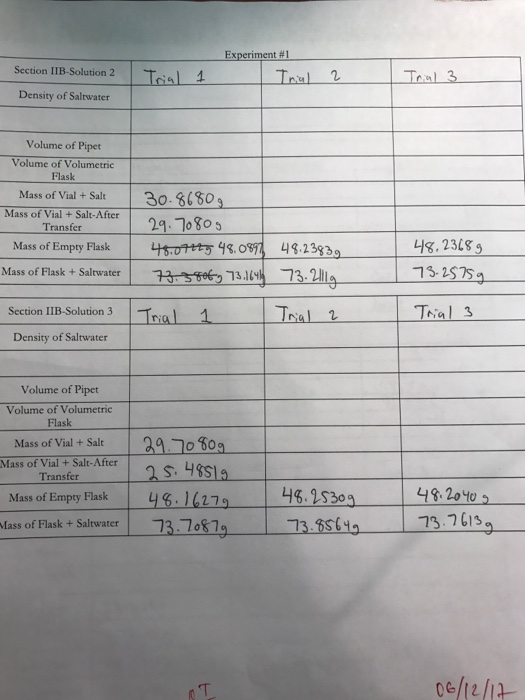 Experiment #1
Section IIB-Solution 2 Trial 1 Trial 2 Trial 3
Density of Saltwater
Volume of Pipet
Volume of Volumetric
Flask
Mass of Vial + Salt 30.8680g
Mass of Vial + Salt-After
Transfer 29.7080g
Mass of Empty Flask 48.0897 48.2383g 48.2368g
Mass of Flask + Saltwater 73.1641g 73.2111g 73.2575g
Section IIB-Solution 3 Trial 1 Trial 2 Trial 3
Density of Saltwater
Volume of Pipet
Volume of Volumetric
Flask
Mass of Vial + Salt 29.7080g
Mass of Vial + Salt-After
Transfer 25.4851g
Mass of Empty Flask 48.1627g 48.2530g 48.2040g
Mass of Flask + Saltwater 73.7087g 73.8564g 73.7613g
06/12/17